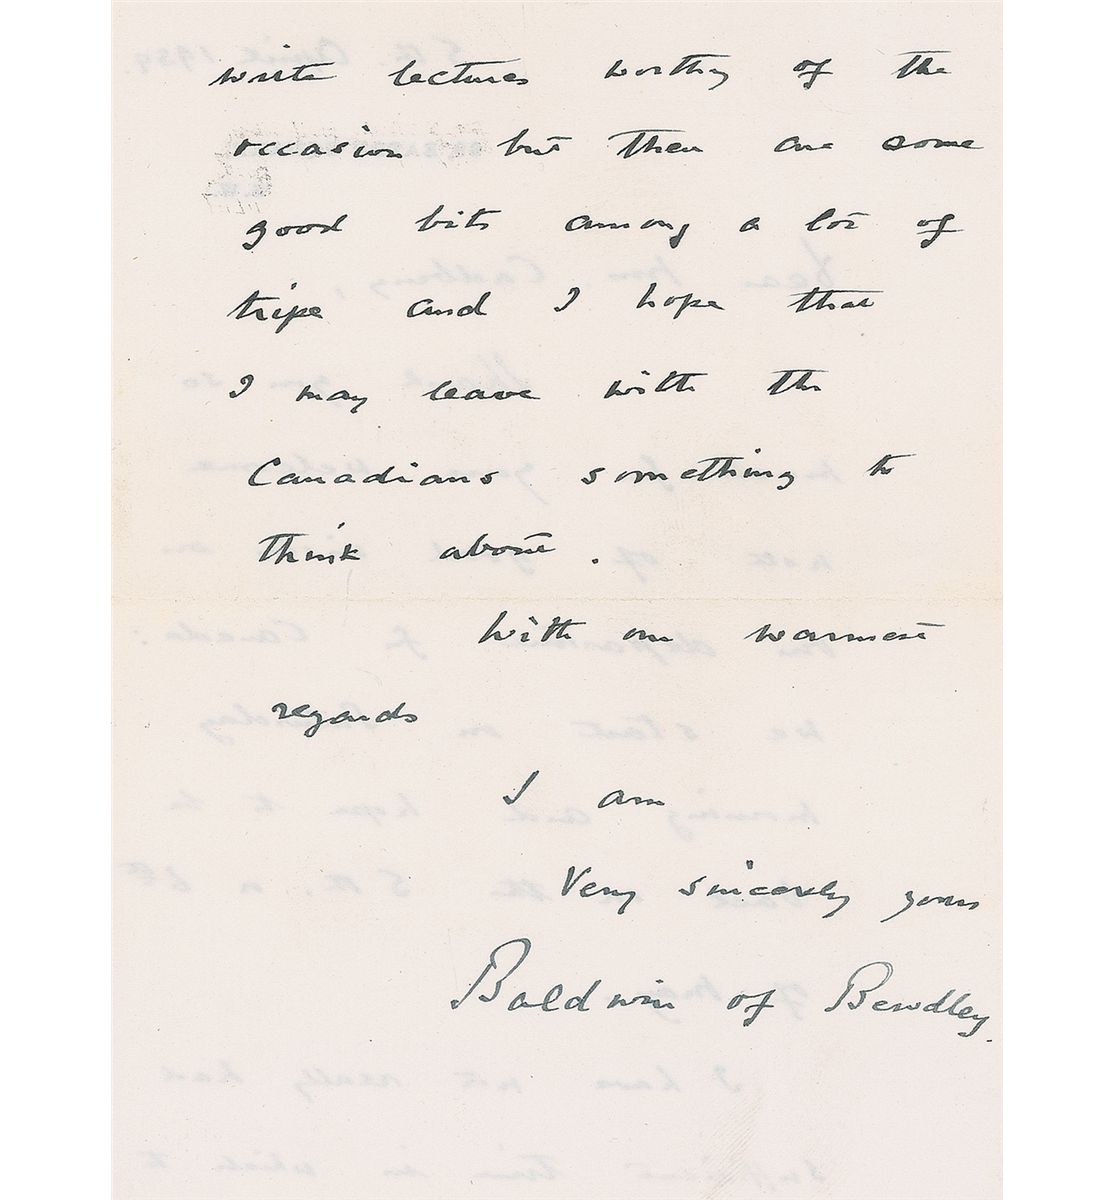 write lectures worthy of the
occasion but there are some
good bits among a lot of
tripe and I hope that
I may leave with the
Canadians something to
think about.
With our warmest
regards
I am
Very sincerely yours
Baldwin of Bewdley.